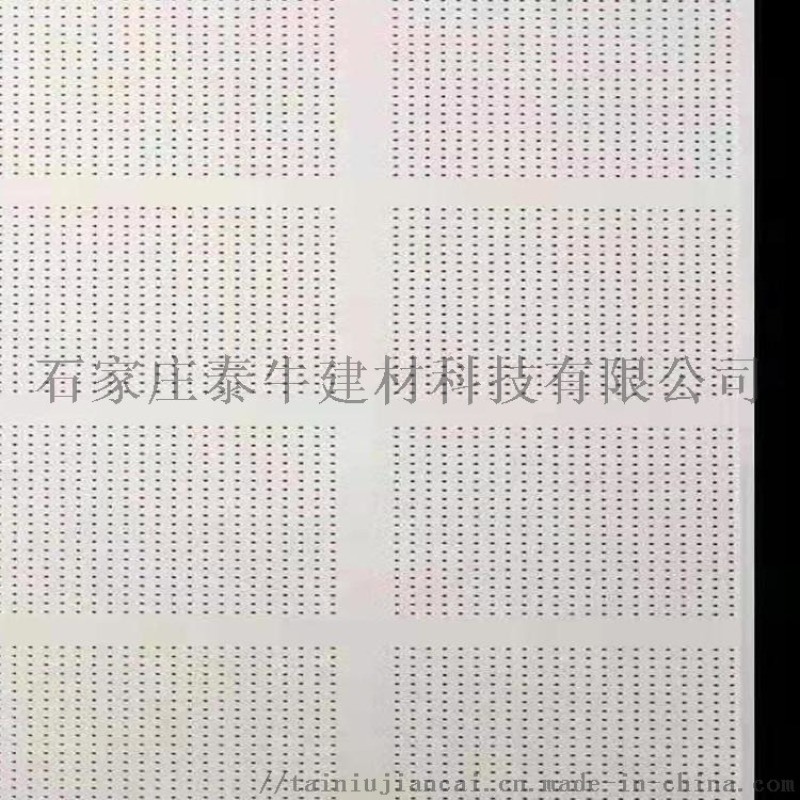 石家庄泰牛建材科技有限公司
//tainiujiancai.cn.made-in-china.com